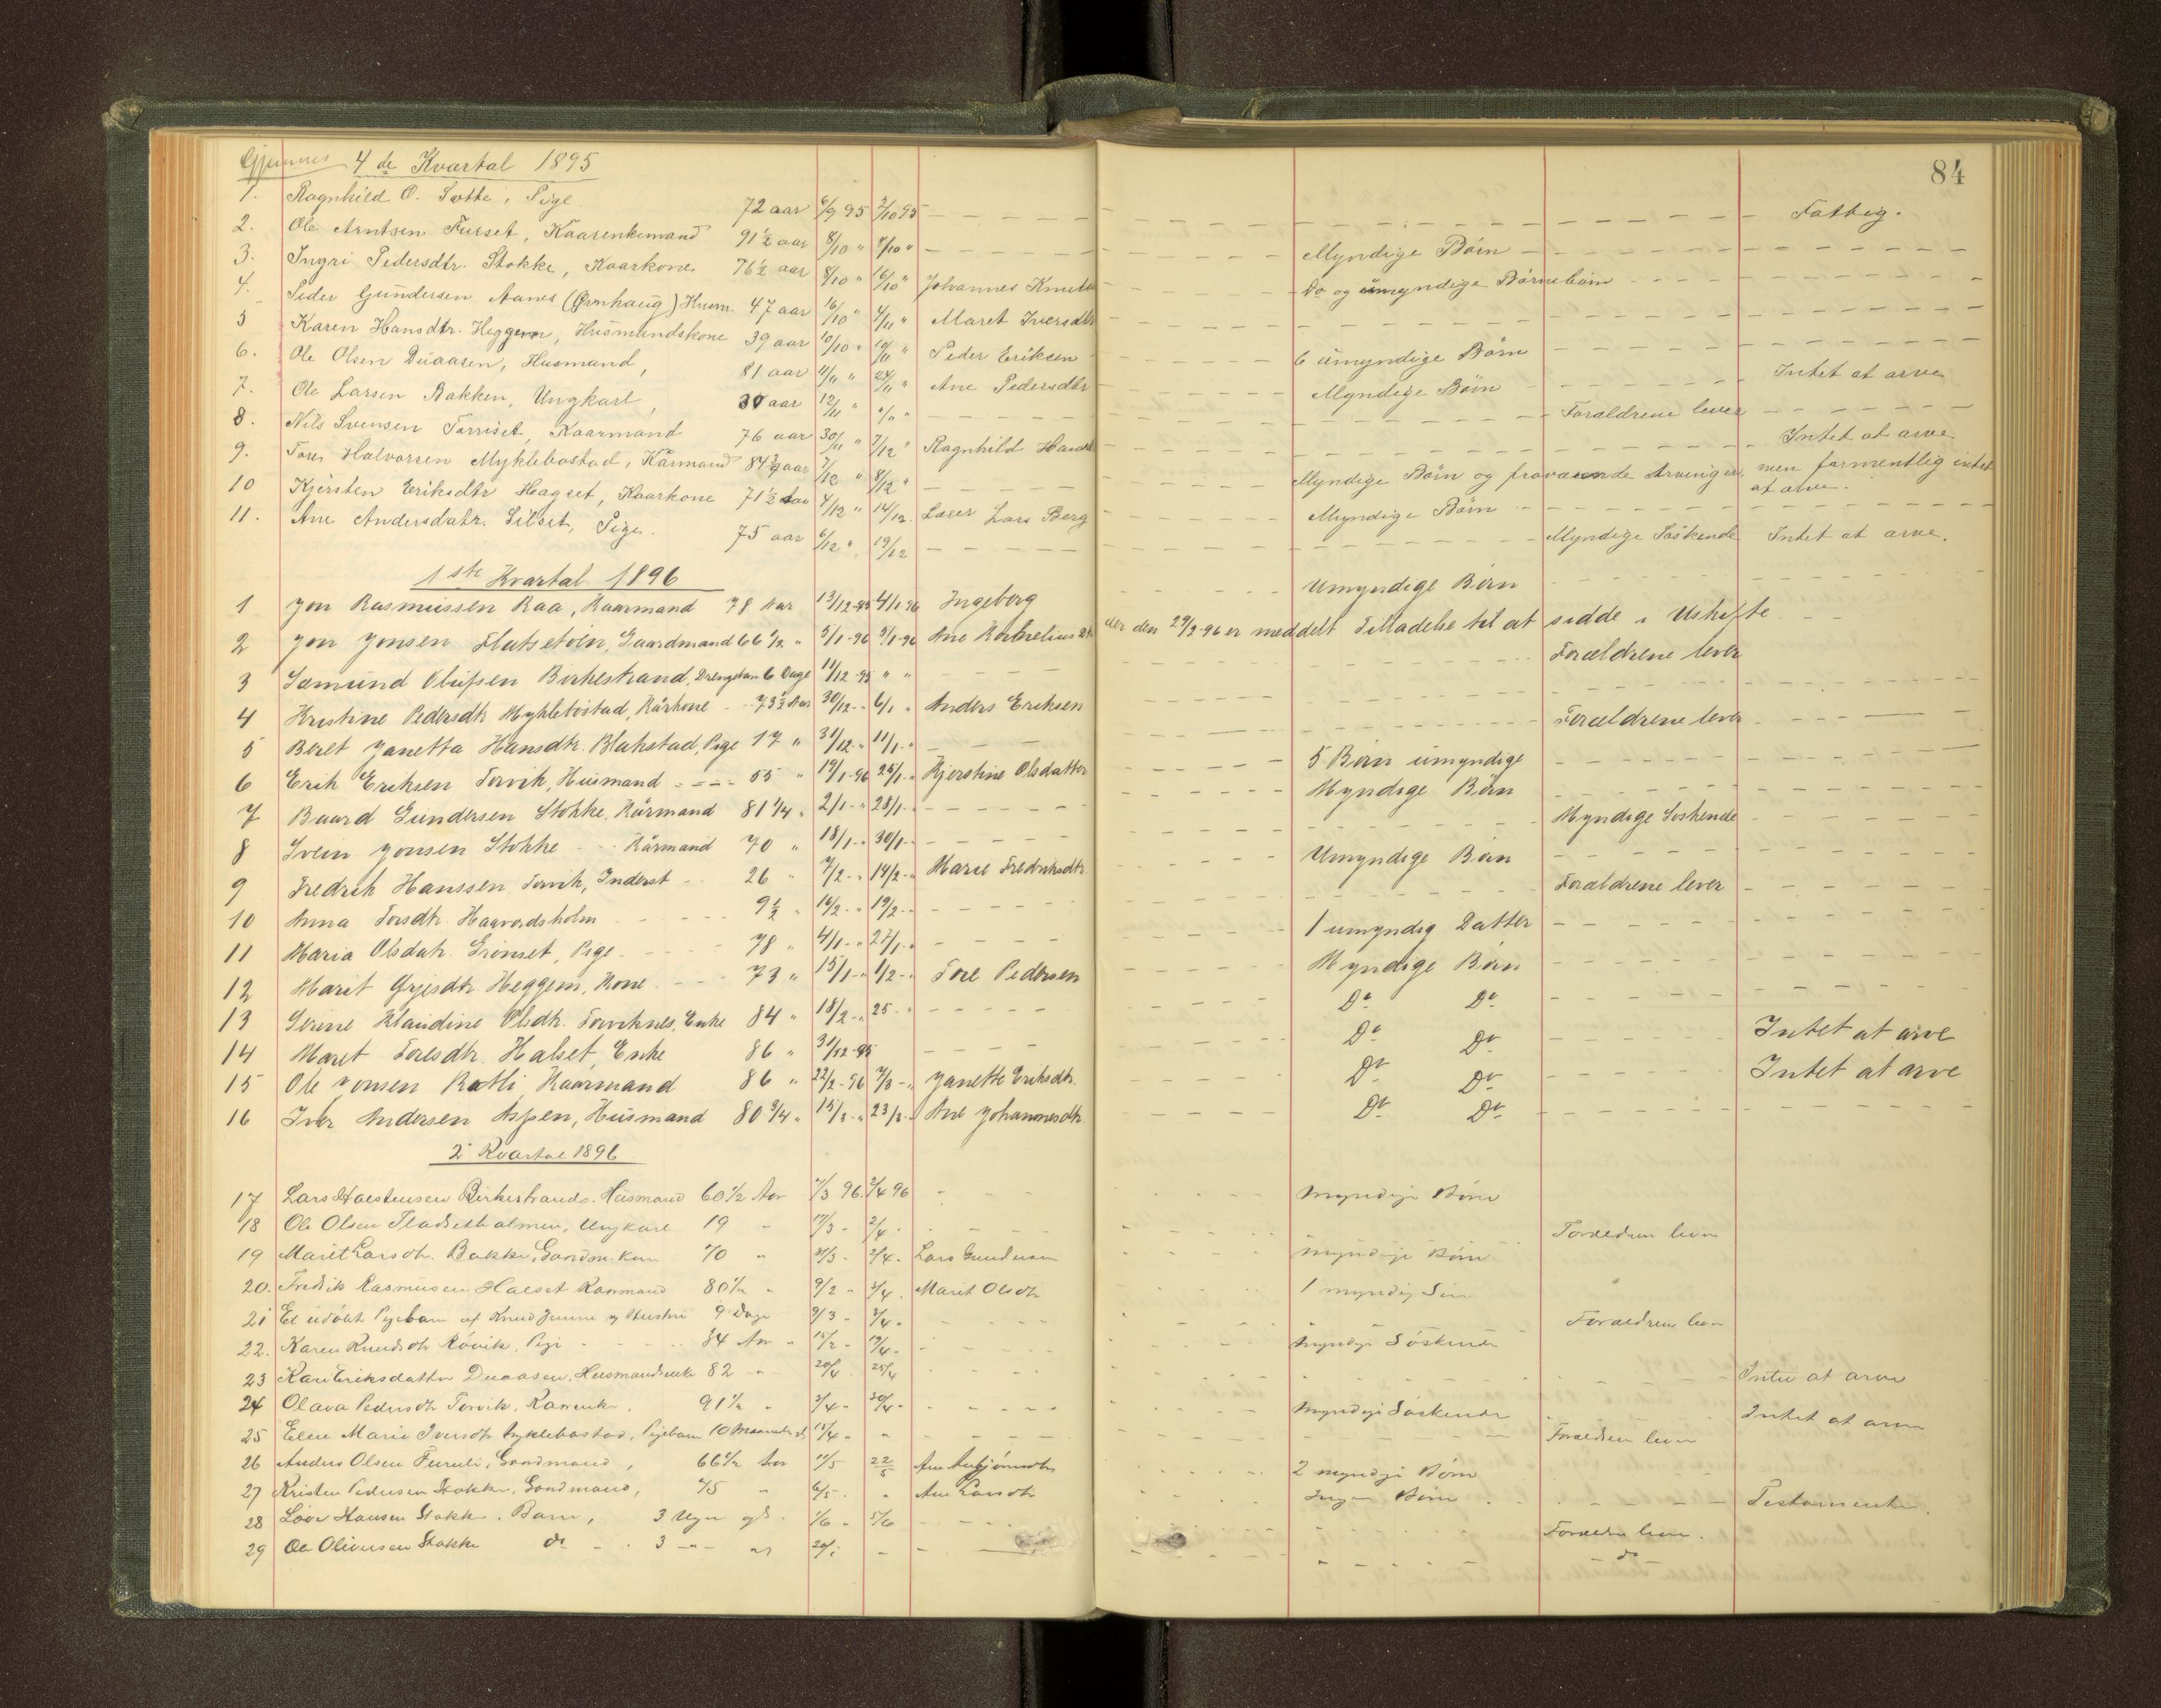 Gjemnes 4de Kvartal 1895
84
1. Ragnhild O. Sæthe, Pige 72 aar 6/9 95 2/10 95 Fattig.
2. Ole Arntsen Furset, Kaarenkemand 91½ aar 8/10 " 9/10 " Myndige Börn
3. Ingri Pedersdtr. Stokke, Kaarkone 76½ aar 8/10 " 16/10 " Johannes Knuts Do og umyndige Börnebörn
4. Peder Gundersen Aanes (Ørnhaug) Husm. 47 aar 16/10 " 4/11 " Maret Iversdtr
5 Karen Hansdtr. Heggem, Husmandskone 39 aar 10/10 " 10/11 " Peder Eriksen 6 umyndige Börn
6. Ole Olsen Duaasen, Husmand, 81 aar 11/11 " 24/11 " Ane Pedersdtr Myndige Börn Intet at arve
7. Ole Larsen Bakken, Ungkarl, 30 aar 12/11 " "/" " Foraldrene lever
8. Nils Svensen Torriset, Kaarmand 76 aar 30/11 " 7/12 " Ragnhild Hansd Intet at arve
9. Tores Halvorsen Myklebostad, Kårmand 84¾ aar 7/12 " 8/12 " Myndige Börn og fraværende Arvinger, men formentlig intet at arve.
10 Kjersten Eriksdtr Hagset, Kaarkone 71½ aar 4/12 " 14/12. Lærer Lars Berg Myndige Börn
11. Ane Andersdatr. Silset, Pige. 75 aar 6/12 " 19/12 Myndige Söskende Intet at arve.
1ste Kvartal 1896
1 Jon Rasmussen Raa, Kaarmand 78 Aar 13/12-95 4/1 96 Ingeborg Umyndige Börn
2 Jon Jonsen Flatsetöen, Gaardmand 66 1/2 " 5/1-96 5/1-96 Ane Kornelius dtr der den 29/2-96 er meddelt Tilladelse til at sidde i Uskifte
3 Sæmund Olufsen Birkestrand, Drengebarn 6 Dage 11/12-95 " " Forældrene lever
4 Kristine Pedersdtr Myklebostad, Kårkone 73½ Aar 30/12- 6/1 " Anders Eriksen
5 Beret Janetta Hansdtr. Blakstad, Pige 17 " 31/12- " 11/1- " Forældrene lever
6 Erik Eriksen Torvik, Husmand 55 " 19/1-96 25/1- " Kjerstine Olsdatter 5 Börn umyndige
7 Baard Gundersen Stokke, Kårmand 81 1/4 " 2/1- " 28/1- Myndige Börn
8 Svein Jonsen Stokke Kårmand 70 " 18/1- 30/1- Myndige Söskende
9 Fredrik Hanssen Torvik, Inderst 26 " 7/2- 14/2- Marie Fredriksdtr. Umyndige Börn
10 Anna Torsdtr. Haavordsholm 9½ " 16/2- 19/2- Forældrene lever
11 Maria Olsdatr. Grönset, Pige 78 " 4/1- " 27/1- 1 umyndig Datter
12 Marit Gryjesdtr. Heggem, Kone 73 " 15/1- 1/2- " Tore Pedersen Myndige Börn
13 Serine Klaudine Olsdtr. Torviknes, Enke 84 " 18/2- " 25- Do Do
14 Maret Toresdtr. Halset, Enke 86 " 31/12-95 Do Do Intet at arve
15 Ole Jonsen Rotli, Kaarmand 86 " 22/2-96 7/3- Janette Eriksdtr. Do Do Intet at arve
16 Iver Andersen Aspen, Husmand 80 3/4 " 15/3- " 23/3- Ane Johannesdtr. Do Do
2 Kvartal 1896
17 Lars Halstensen Birkestrand. Husmand 60½ Aar 7/3 96 2/4 96 Myndige Börn
18 Ole Olsen Fladsetholmen, Ungkarl 19 " 17/3 - 2/4 - Forældren lever
19 Marit Larsdtr. Bakke, Gaardm. kone 70 " 31/3 - 2/4 - Lars Gundersen Myndige Börn
20. Fredrik Rasmusen Halset Kaarmand 80½ " 9/2 - 2/4 . Marit Olsdtr 1 myndig Sön
21 Et udöbt Pigebarn af Knud og Hustru 9 Dage 9/3 - 3/4 - Forældren lever
22. Karen Knudsdtr Rövik, Pige 84 Aar 15/2 - 19/4 - Myndige Söskende
23 Kari Eriksdatter Duaasen, Husmandsenke 82 " 20/4 25/4 Intet at arve
24 Olava Pedersdtr Torvik, Kaarenke. 91½ " 3/4 - 30/4 - Myndige Söskende Intet at arve
25 Elen Marie Iversdtr Myklebostad, Pigebarn 10 Maaneder gl. 15/4 - " Forældren lever
26 Anders Olsen Furuli, Gaardmand, 66½ Aar 11/5 22/5 Ane 2 myndige Börn
27 Kristen Pedersen Stokke, Gaardmand, 75 " 6/5 . " Ane Larsdtr Ingen Börn Testamente.
28 Hansen Stokke. Barn, 3 Uger gl. 1/6 - 5/6 Forældre lever.
29 Ole Oliversen Stokke do 3 -"- - - do